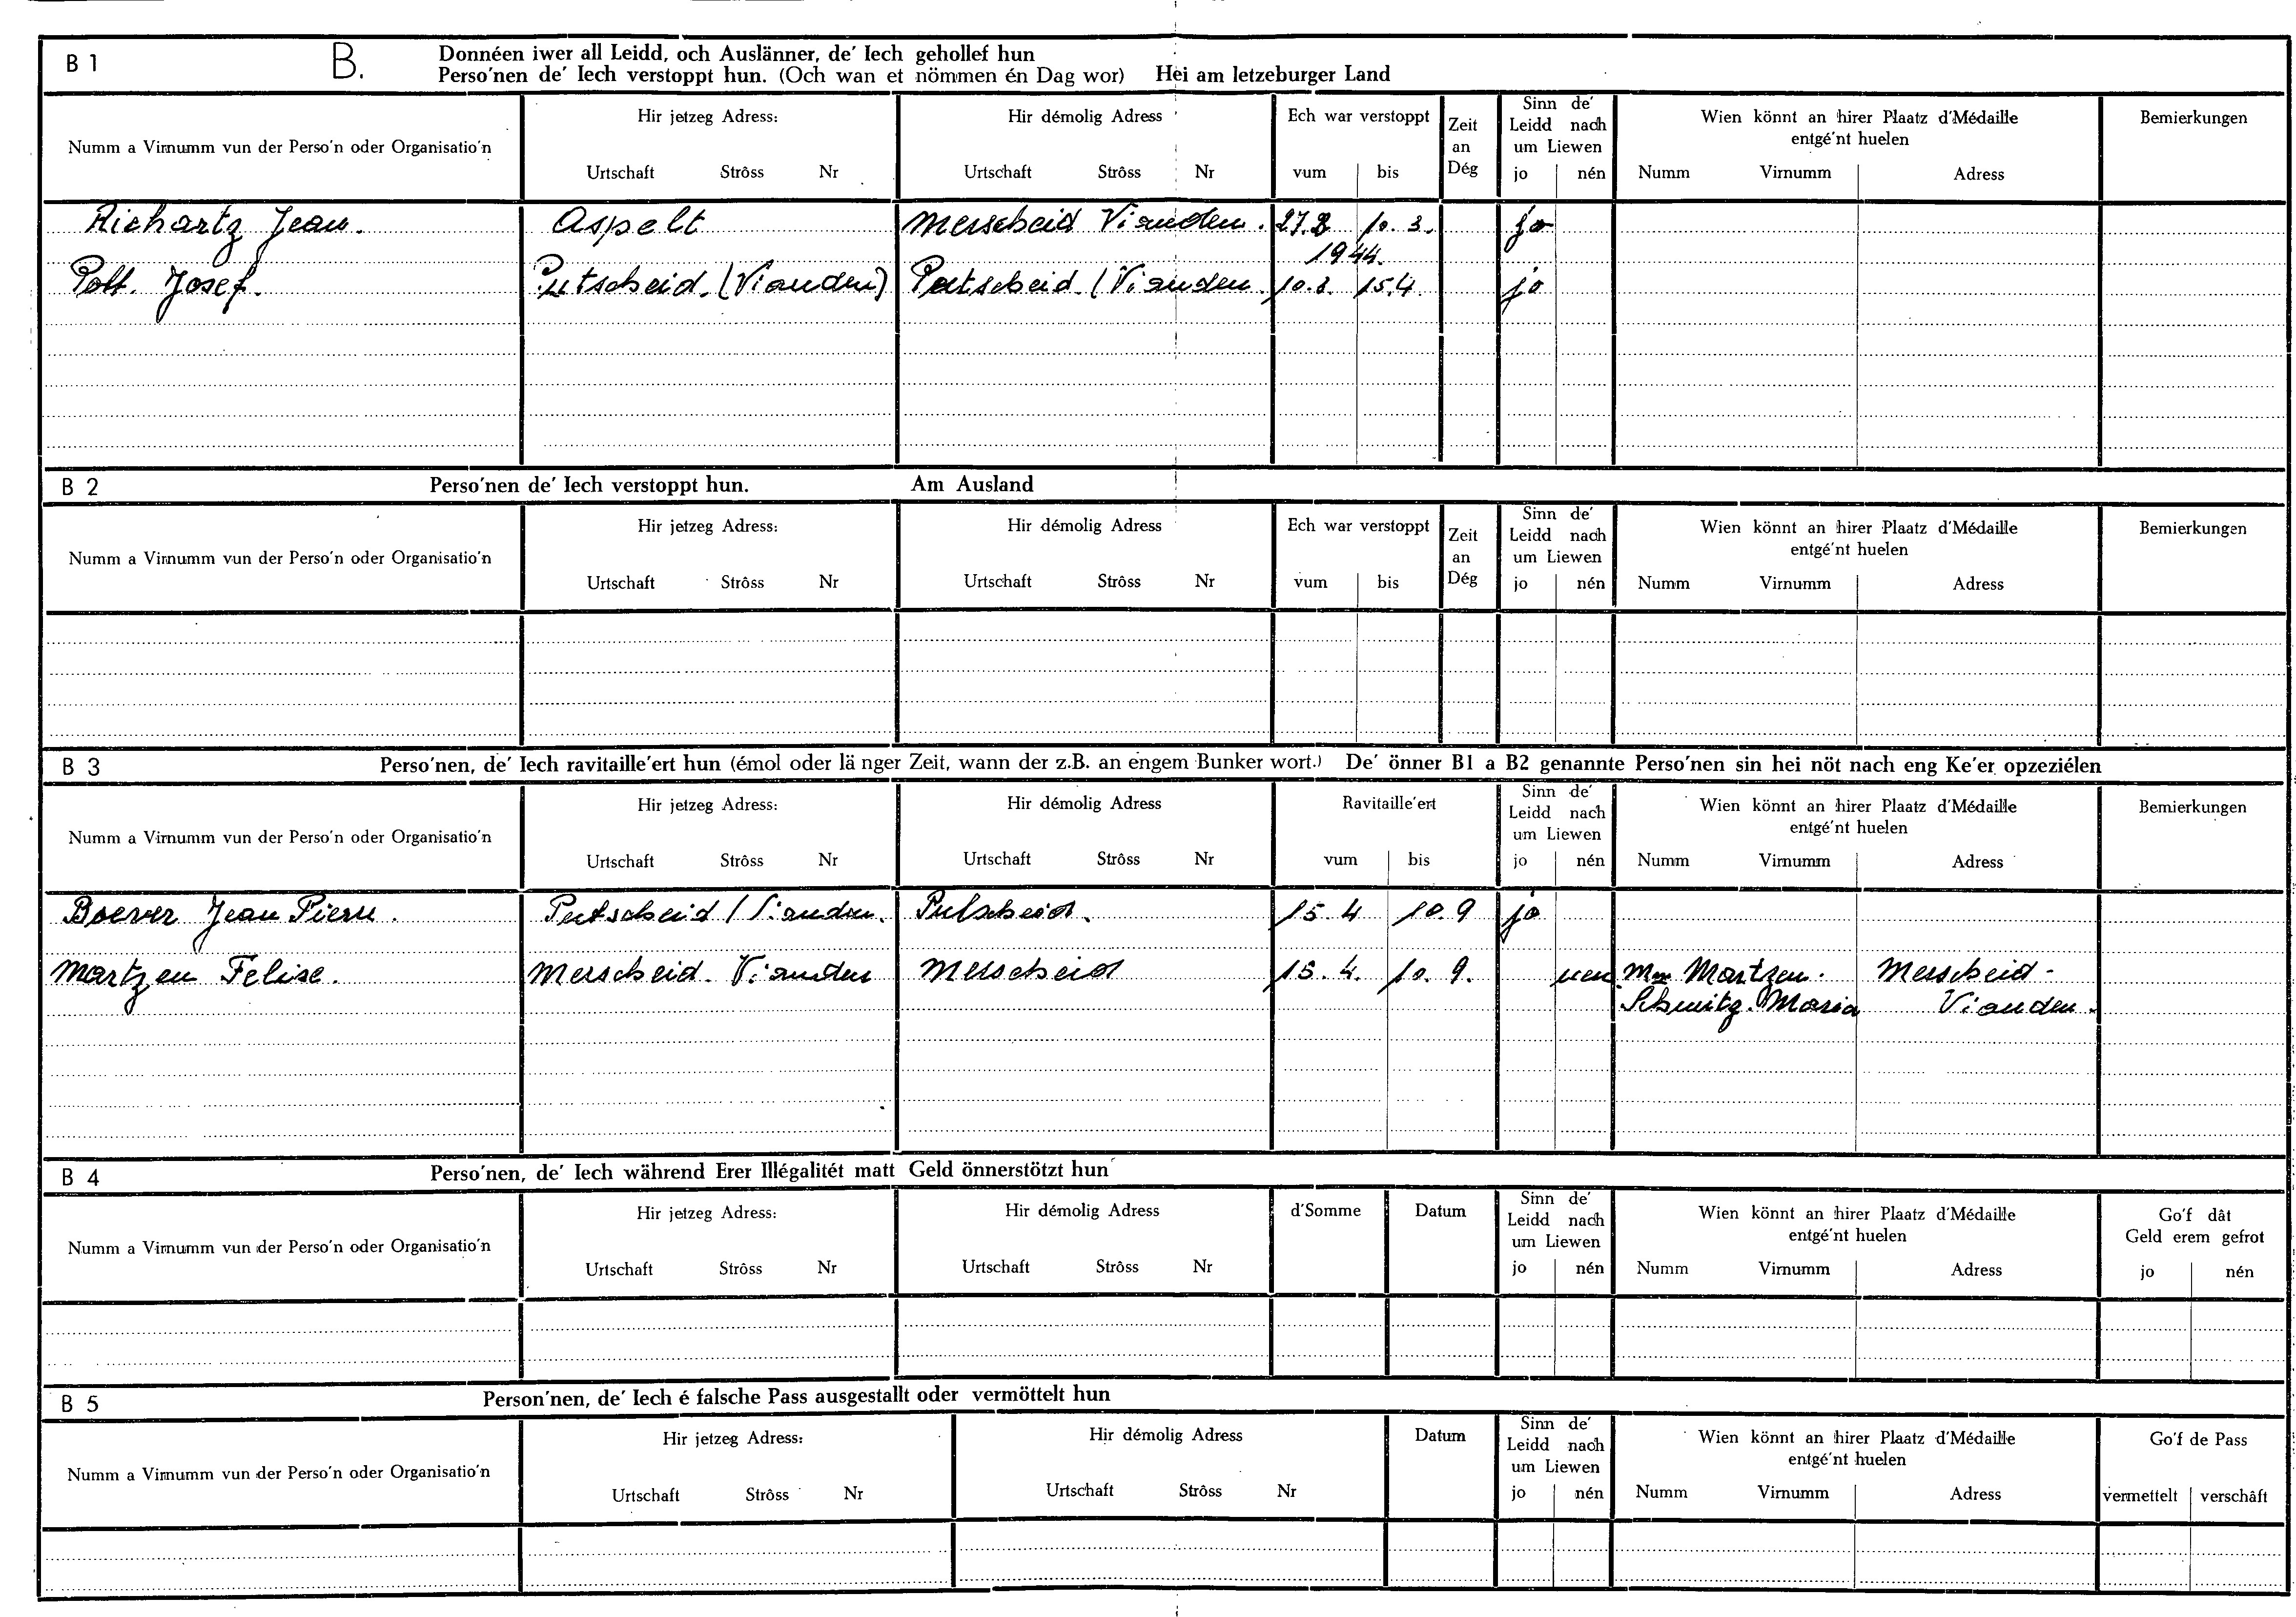 B 1 B. Donnéen iwer all Leidd, och Auslänner, de' Iech gehollef hun
Perso'nen de' Iech verstoppt hun. (Och wan et nömmen én Dag wor) Hei am letzeburger Land
Numm a Virnumm vun der Perso'n oder Organisatio'n
Hir jetzeg Adress:
Urtschaft Strôss Nr
Hir démolig Adress
Urtschaft Strôss Nr
Ech war verstoppt
vum bis
Zeit
an
Dég
Sinn de'
Leidd nach
um Liewen
jo nén
Wien könnt an hirer Plaatz d'Médaille
entgé'nt huelen
Numm Virnumm Adress
Bemierkungen
Richartz Jean. Aspelt Merscheid Vianden. 27.2 10.3. jo
1944.
Josef. Putscheid. (Vianden) Putscheid. (Vianden. 10.3. 15.4. jo
B 2 Perso'nen de' Iech verstoppt hun. Am Ausland
Numm a Virnumm vun der Perso'n oder Organisatio'n
Hir jetzeg Adress:
Urtschaft Strôss Nr
Hir démolig Adress
Urtschaft Strôss Nr
Ech war verstoppt
vum bis
Zeit
an
Dég
Sinn de'
Leidd nach
um Liewen
jo nén
Wien könnt an hirer Plaatz d'Médaille
entgé'nt huelen
Numm Virnumm Adress
Bemierkungen
B 3 Perso'nen, de' Iech ravitaille'ert hun (émol oder länger Zeit, wann der z.B. an engem Bunker wort.) De' önner B1 a B2 genannte Perso'nen sin hei nöt nach eng Ke'er opzeziélen
Numm a Virnumm vun der Perso'n oder Organisatio'n
Hir jetzeg Adress:
Urtschaft Strôss Nr
Hir démolig Adress
Urtschaft Strôss Nr
Ravitaille'ert
vum bis
Sinn de'
Leidd nach
um Liewen
jo nén
Wien könnt an hirer Plaatz d'Médaille
entgé'nt huelen
Numm Virnumm Adress
Bemierkungen
Boever Jean Pierre. Putscheid / Vianden. Putscheid. 15.4 10.9 jo
Martzen Felise. Merscheid. Vianden Merscheid 15.4. 10.9. nen Mme Martzen. Merscheid-
Schmitz. Maria Vianden.
B 4 Perso'nen, de' Iech während Erer Illégalitét matt Geld önnerstötzt hun
Numm a Virnumm vun der Perso'n oder Organisatio'n
Hir jetzeg Adress:
Urtschaft Strôss Nr
Hir démolig Adress
Urtschaft Strôss Nr
d'Somme
Datum
Sinn de'
Leidd nach
um Liewen
jo nén
Wien könnt an hirer Plaatz d'Médaille
entgé'nt huelen
Numm Virnumm Adress
Go'f dât
Geld erem gefrot
jo nén
B 5 Person'nen, de' Iech é falsche Pass ausgestallt oder vermöttelt hun
Numm a Virnumm vun der Perso'n oder Organisatio'n
Hir jetzeg Adress:
Urtschaft Strôss Nr
Hir démolig Adress
Urtschaft Strôss Nr
Datum
Sinn de'
Leidd nach
um Liewen
jo nén
Wien könnt an hirer Plaatz d'Médaille
entgé'nt huelen
Numm Virnumm Adress
Go'f de Pass
vermettelt verschâft